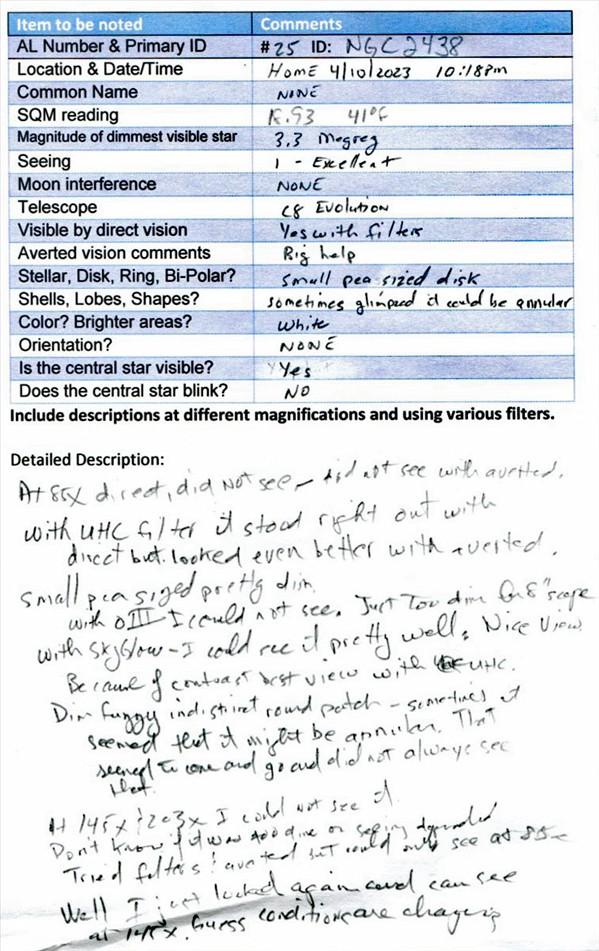 Item to be noted Comments
AL Number & Primary ID #25 ID: NGC2438
Location & Date/Time Home 4/10/2023 10:18pm
Common Name NONE
SQM reading 18.93 41°F
Magnitude of dimmest visible star 3.3 Megrez
Seeing 1 - Excellent
Moon interference NONE
Telescope C8 Evolution
Visible by direct vision Yes with filters
Averted vision comments Big help
Stellar, Disk, Ring, Bi-Polar? Small pea sized disk
Shells, Lobes, Shapes? sometimes glimpsed it could be annular
Color? Brighter areas? White
Orientation? NONE
Is the central star visible? Yes
Does the central star blink? NO
Include descriptions at different magnifications and using various filters.
Detailed Description:
At 85X direct, did Not see - did not see with averted.
With UHC filter it stood right out with
direct but looked even better with averted.
Small pea sized pretty dim
with OIII I could not see. Just Too dim for 8" scope
With SkyGlow - I could see it pretty well. Nice View
Because of contrast best view with UHC.
Dim fuzzy indistinct round patch - sometimes it
seemed that it might be annular. That
seemed to come and go and did not always see
that.
At 145x & 203x I could not see it
Don't know if it was too dim or seeing degraded
Tried filters & averted but could only see at 85x
Well I just looked again and can see
at 145x. Guess conditions are changing